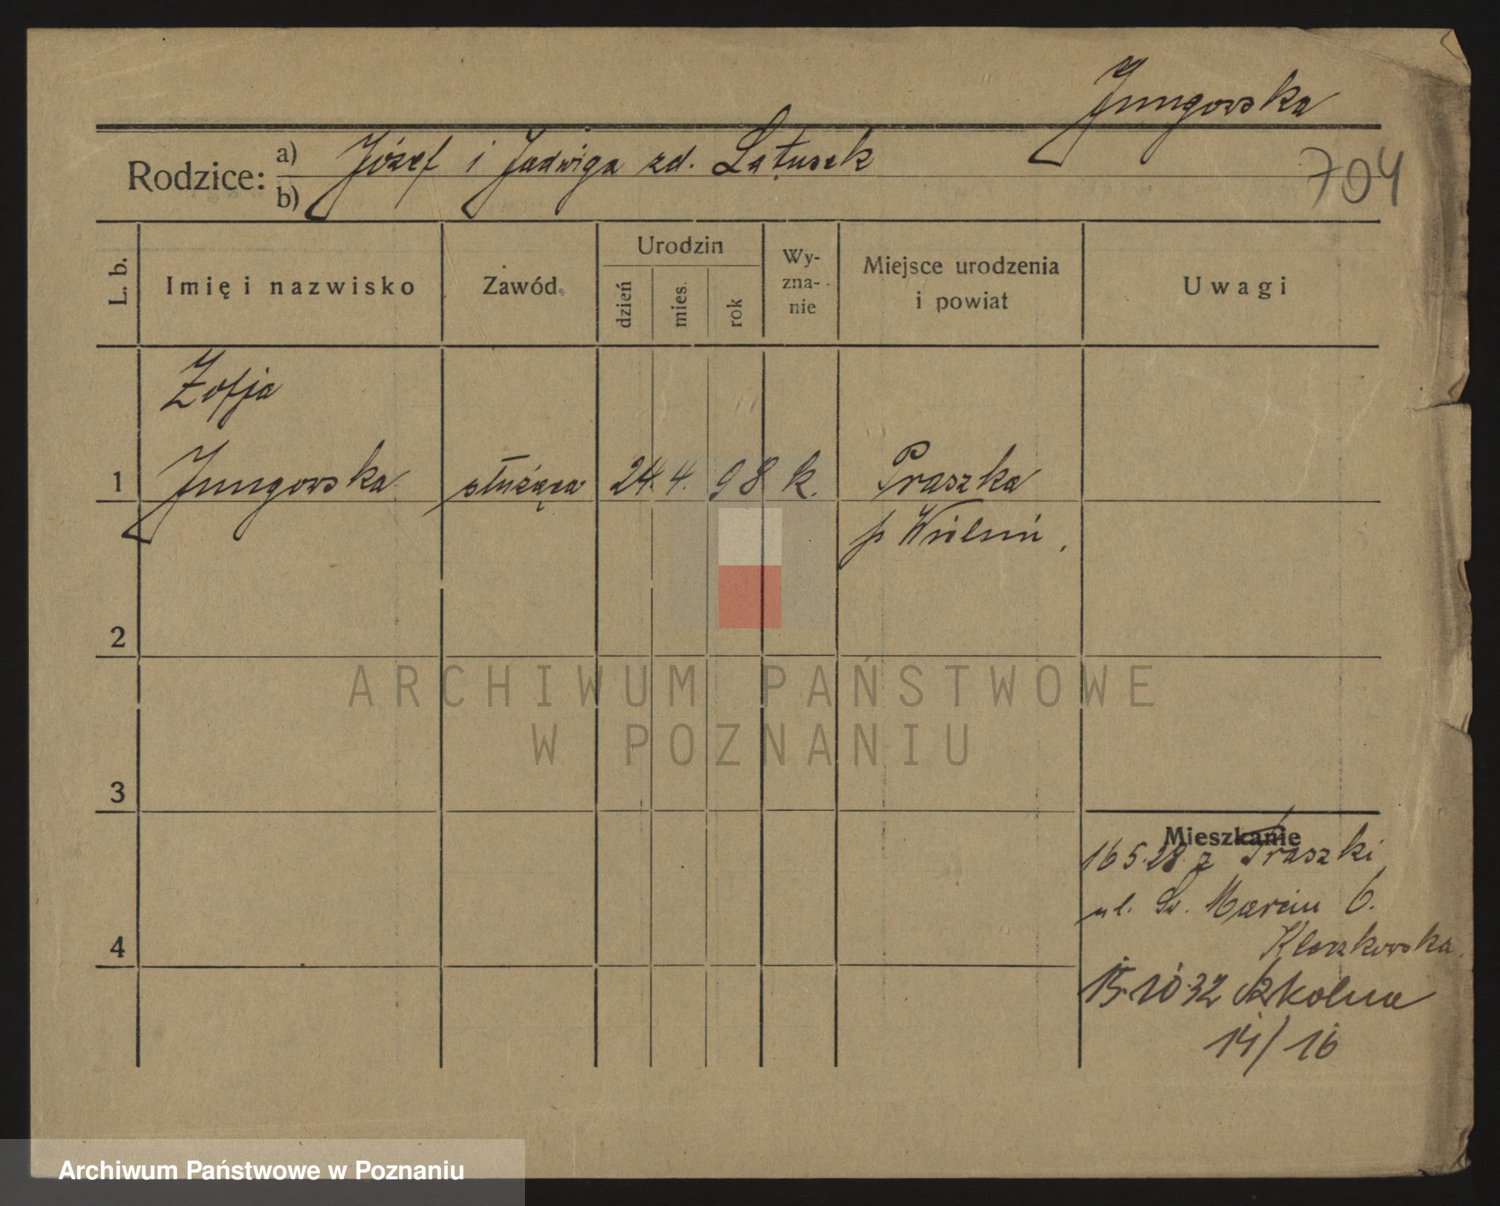 Jungowska
704
Rodzice: a) Józef i Jadwiga zd. Latusek
b)
L. b.
Imię i nazwisko
Zawód
Urodzin
dzień
mies.
rok
Wy-
zna-
nie
Miejsce urodzenia
i powiat
Uwagi
Zofja
1 Jungowska służąca 24. 4. 98 k. Praszka
p Wieluń.
2
ARCHIWUM PAŃSTWOWE
W POZNANIU
3
Mieszkanie
16 5.28. z Praszki
ul. Św. Marcin 6.
4
15.10.32 Szkolna
14/16
Archiwum Państwowe w Poznaniu